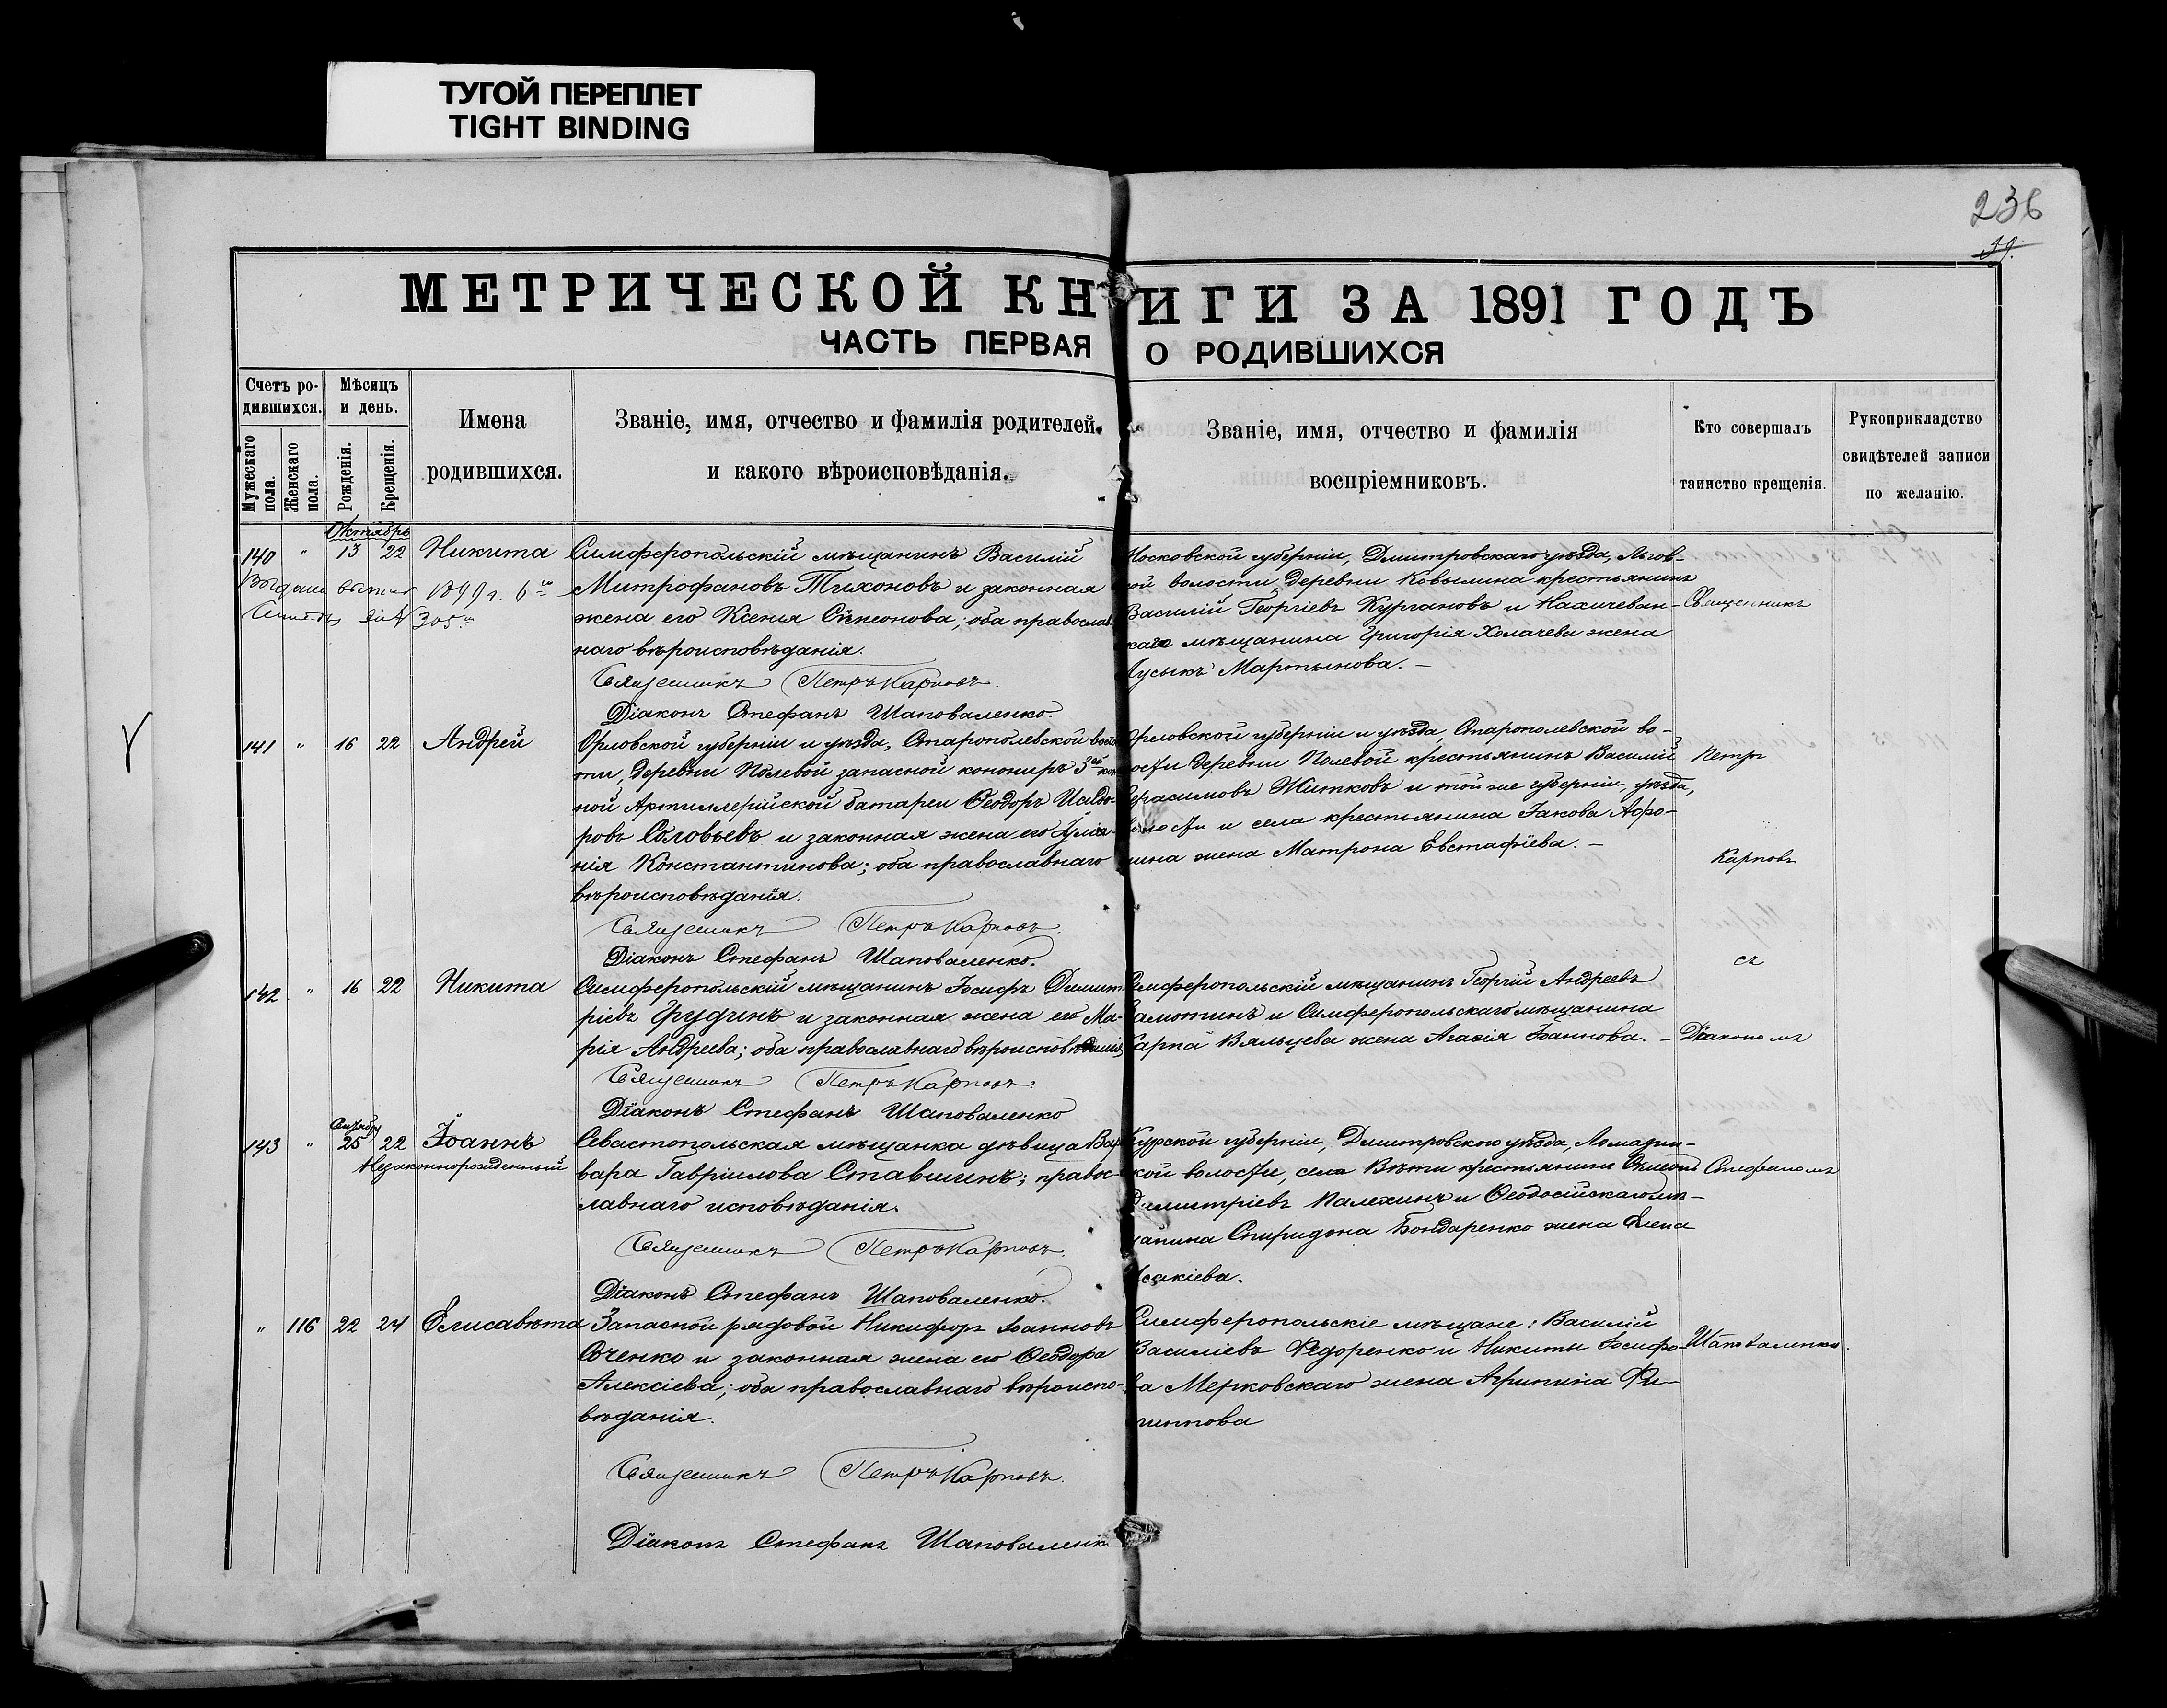 ТУГОЙ ПЕРЕПЛЕТ
TIGHT BINDING
236
МЕТРИЧЕСКОЙ КНИГИ ЗА 1891 ГОДЪ
ЧАСТЬ ПЕРВАЯ О РОДИВШИХСЯ
Счетъ родившихся.
Мужескаго пола.
Женскаго пола.
Мѣсяцъ и день.
Рожденія.
Крещенія.
Имена родившихся.
Званіе, имя, отчество и фамилія родителей,
и какого вѣроисповѣданія.
Званіе, имя, отчество и фамилія
воспріемниковъ.
Кто совершалъ
таинство крещенія.
Рукоприкладство
свидѣтелей записи
по желанію.
Октябрь
140 " 13 22 Никита
1899 г.
305
Симферопольскій мѣщанинъ Василій
Митрофановъ Тихоновъ и законная
жена его Ксенія Сѵмеонова; оба православ-
наго вѣроисповѣданія.
Священникъ Петръ Карповъ.
Діаконъ Стефанъ Шаповаленко.
Московской губерніи, Дмитровскаго уѣзда, Льгов-
кой волости, деревни Ковылина крестьянинъ
Василій Георгіевъ Кургановъ и Нахичеван-
скаго мѣщанина Григорія Холачева жена
Лусыкъ Мартынова. –
141 " 16 22 Андрей
Орловской губерніи и уѣзда, Старополевской волос-
ти, деревни Полевой запасной канониръ 3ей кон-
ной Артиллерійской батареи Ѳеодоръ Исидо-
ровъ Соловьевъ и законная жена его Іуліа-
нія Константинова; оба православнаго
вѣроисповѣданія.
Священникъ Петръ Карповъ.
Діаконъ Стефанъ Шаповаленко.
Орловской губерніи и уѣзда, Старополевской во-
лости деревни Полевой крестьянинъ Василій
Герасимовъ Житковъ и той же губерніи, уѣзда,
волости и села крестьянина Іакова Афо-
нина жена Матрона Евстафіева. –
142 " 16 22 Никита
Симферопольскій мѣщанинъ Іосифъ Димит-
ріевъ Грудинъ и законная жена его Ма-
рія Андреева; оба православнаго вѣроисповѣданія
Священникъ Петръ Карповъ.
Діаконъ Стефанъ Шаповаленко
Симферопольскій мѣщанинъ Георгій Андреевъ
и Симферопольскаго мѣщанина
Карпа Вяльцева жена Агафія Іоаннова. –
Сентябрь
143 " 25 22 Іоаннъ
Незаконнорожденный
Севастопольская мѣщанка дѣвица Вар-
вара Гавріилова Ставшинъ; правос-
лавнаго исповѣданія.
Священникъ Петръ Карповъ.
Діаконъ Стефанъ Шаповаленко.
Курской губерніи, Дмитровскаго уѣзда,
кой волости, села крестьянинъ Симеонъ
Димитріевъ Палехинъ и Ѳеодосійскаго мѣ-
щанина Спиридона Бондаренко жена Елена
Исакіева.
" 116 22 24 Елисавѣта
Запасной рядовой Никифоръ Іоанновъ
Оченко и законная жена его Ѳеодора
Алексіева; оба православнаго вѣроиспо-
вѣданія.
Священникъ Петръ Карповъ.
Діаконъ Стефанъ Шаповаленко
Симферопольскіе мѣщане: Василій
Василіевъ Федоренко и Никиты Іосифо-
ва Мерковскаго жена Агрипина Фи-
липпова
Священникъ
Петръ
Карповъ
съ
Діакономъ
Стефаномъ
Шаповаленко.